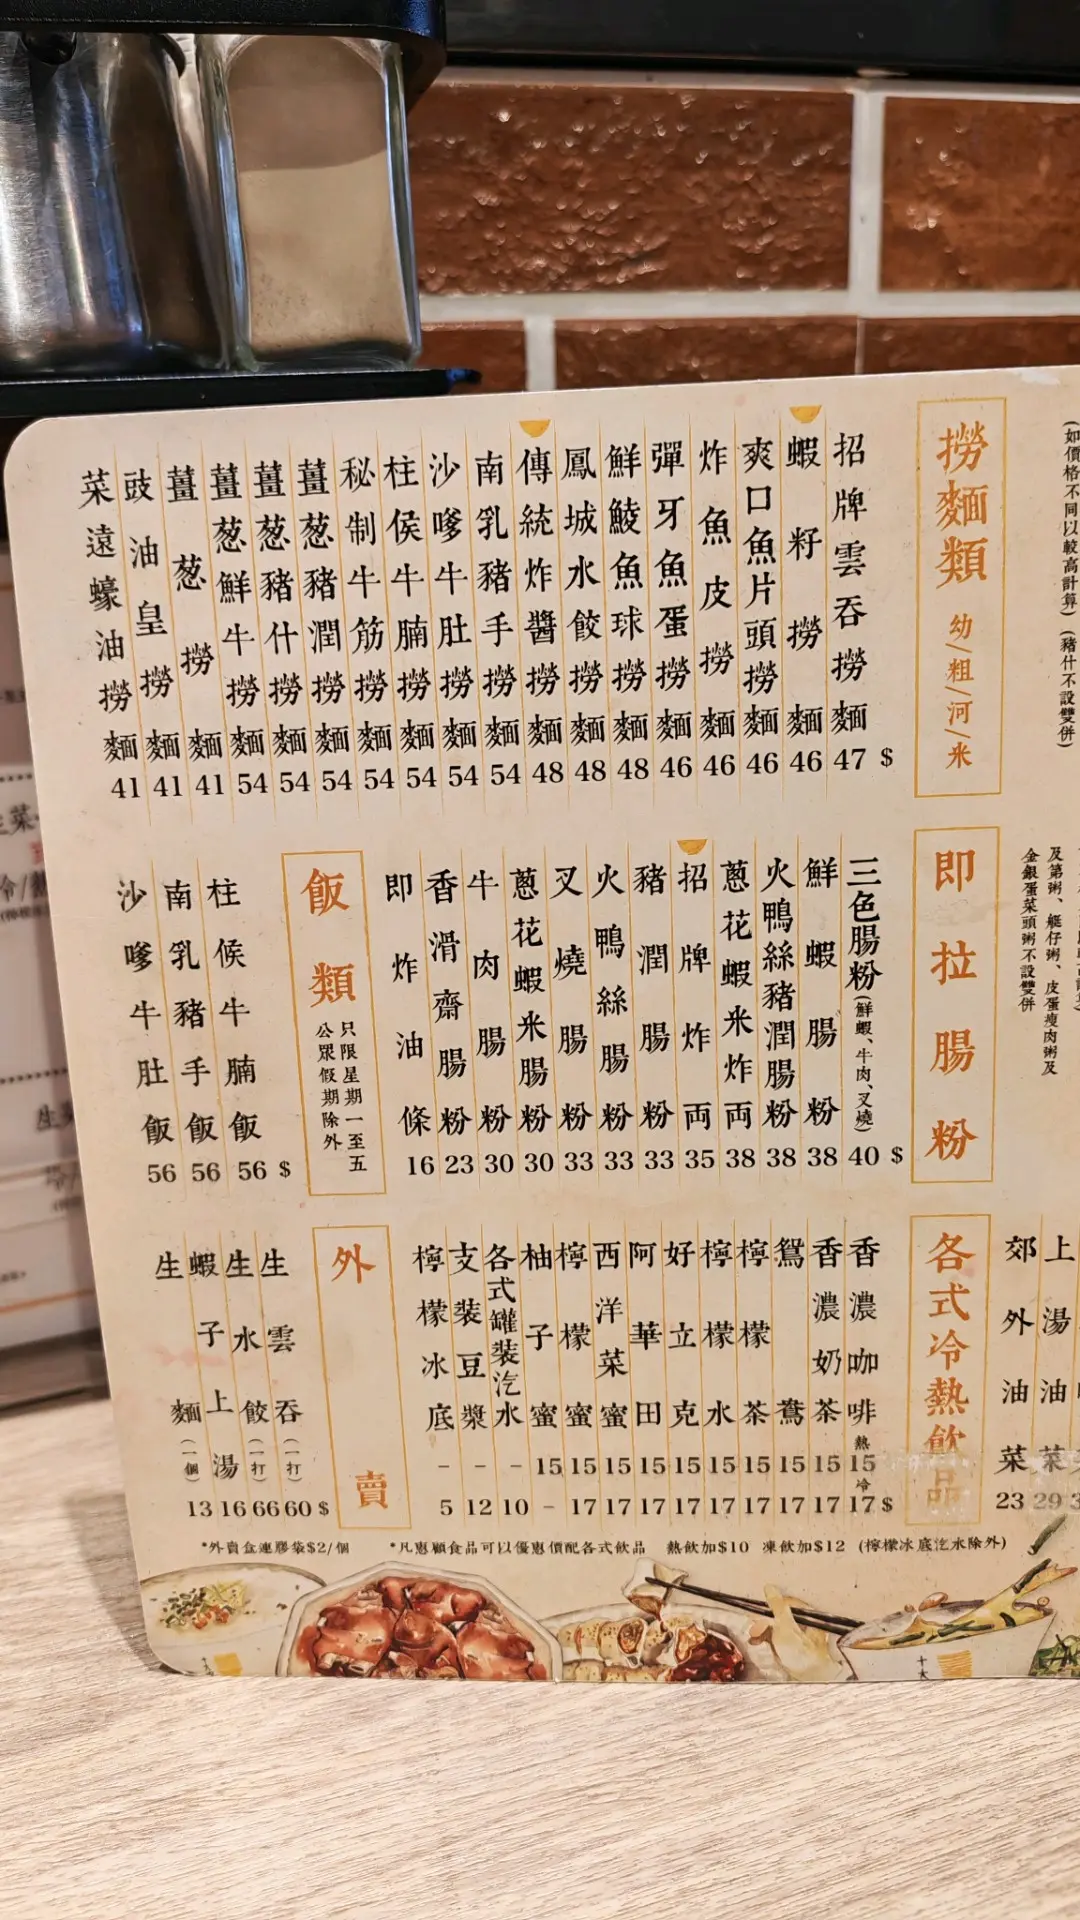 (如價格不同以較高計算) (豬什不設雙併)
撈麵類 幼/粗/河/米
招牌雲吞撈麵 47 $
蝦籽撈麵 46
爽口魚片頭撈麵 46
炸魚皮撈麵 46
彈牙魚蛋撈麵 46
鮮鯪魚球撈麵 48
鳳城水餃撈麵 48
傳統炸醬撈麵 48
南乳豬手撈麵 54
沙嗲牛肚撈麵 54
柱侯牛腩撈麵 54
秘制牛筋撈麵 54
薑葱豬潤撈麵 54
薑葱豬什撈麵 54
薑葱鮮牛撈麵 54
薑葱撈麵 41
豉油皇撈麵 41
菜遠蠔油撈麵 41
及第粥、艇仔粥、皮蛋瘦肉粥及
金銀蛋菜頭粥不設雙併
即拉腸粉
三色腸粉(鮮蝦、牛肉、叉燒) 40 $
鮮蝦腸粉 38
火鴨絲豬潤腸粉 38
蔥花蝦米炸両 38
招牌炸両 35
豬潤腸粉 33
火鴨絲腸粉 33
叉燒腸粉 33
蔥花蝦米腸粉 30
牛肉腸粉 30
香滑齋腸粉 23
即炸油條 16
飯類
只限星期一至五
公眾假期除外
柱侯牛腩飯 56 $
南乳豬手飯 56
沙嗲牛肚飯 56
上湯油菜 29
郊外油菜 23
各式冷熱飲品
香濃咖啡 熱 15 冷 17 $
香濃奶茶 15 17
鴛鴦 15 17
檸檬茶 15 17
檸檬水 15 17
好立克 15 17
阿華田 15 17
西洋菜蜜 15 17
檸檬蜜 15 17
柚子蜜 15 –
各式罐裝汽水 – 10
支裝豆漿 – 12
檸檬冰底 – 5
外賣
生雲吞(一打) 60 $
生水餃(一打) 66
蝦子上湯 16
生麵(一個) 13
*外賣盒連膠袋$2/個 *凡惠顧食品可以優惠價配各式飲品 熱飲加$10 凍飲加$12 (檸檬冰底汽水除外)